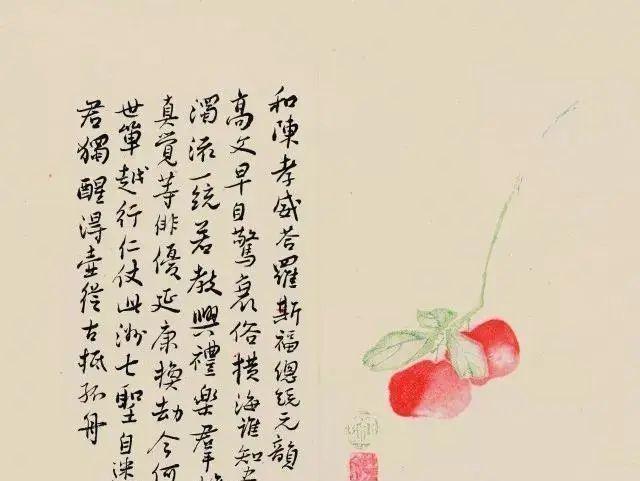 和陳孝威荅羅斯福總統元韻
高文早自驚衰俗横海誰知
濁流一統若教興禮樂羣
真覺等俳優延康換劫今何
世單越行仁仗此洲七聖自迷
君獨醒得壺從古抵孤舟